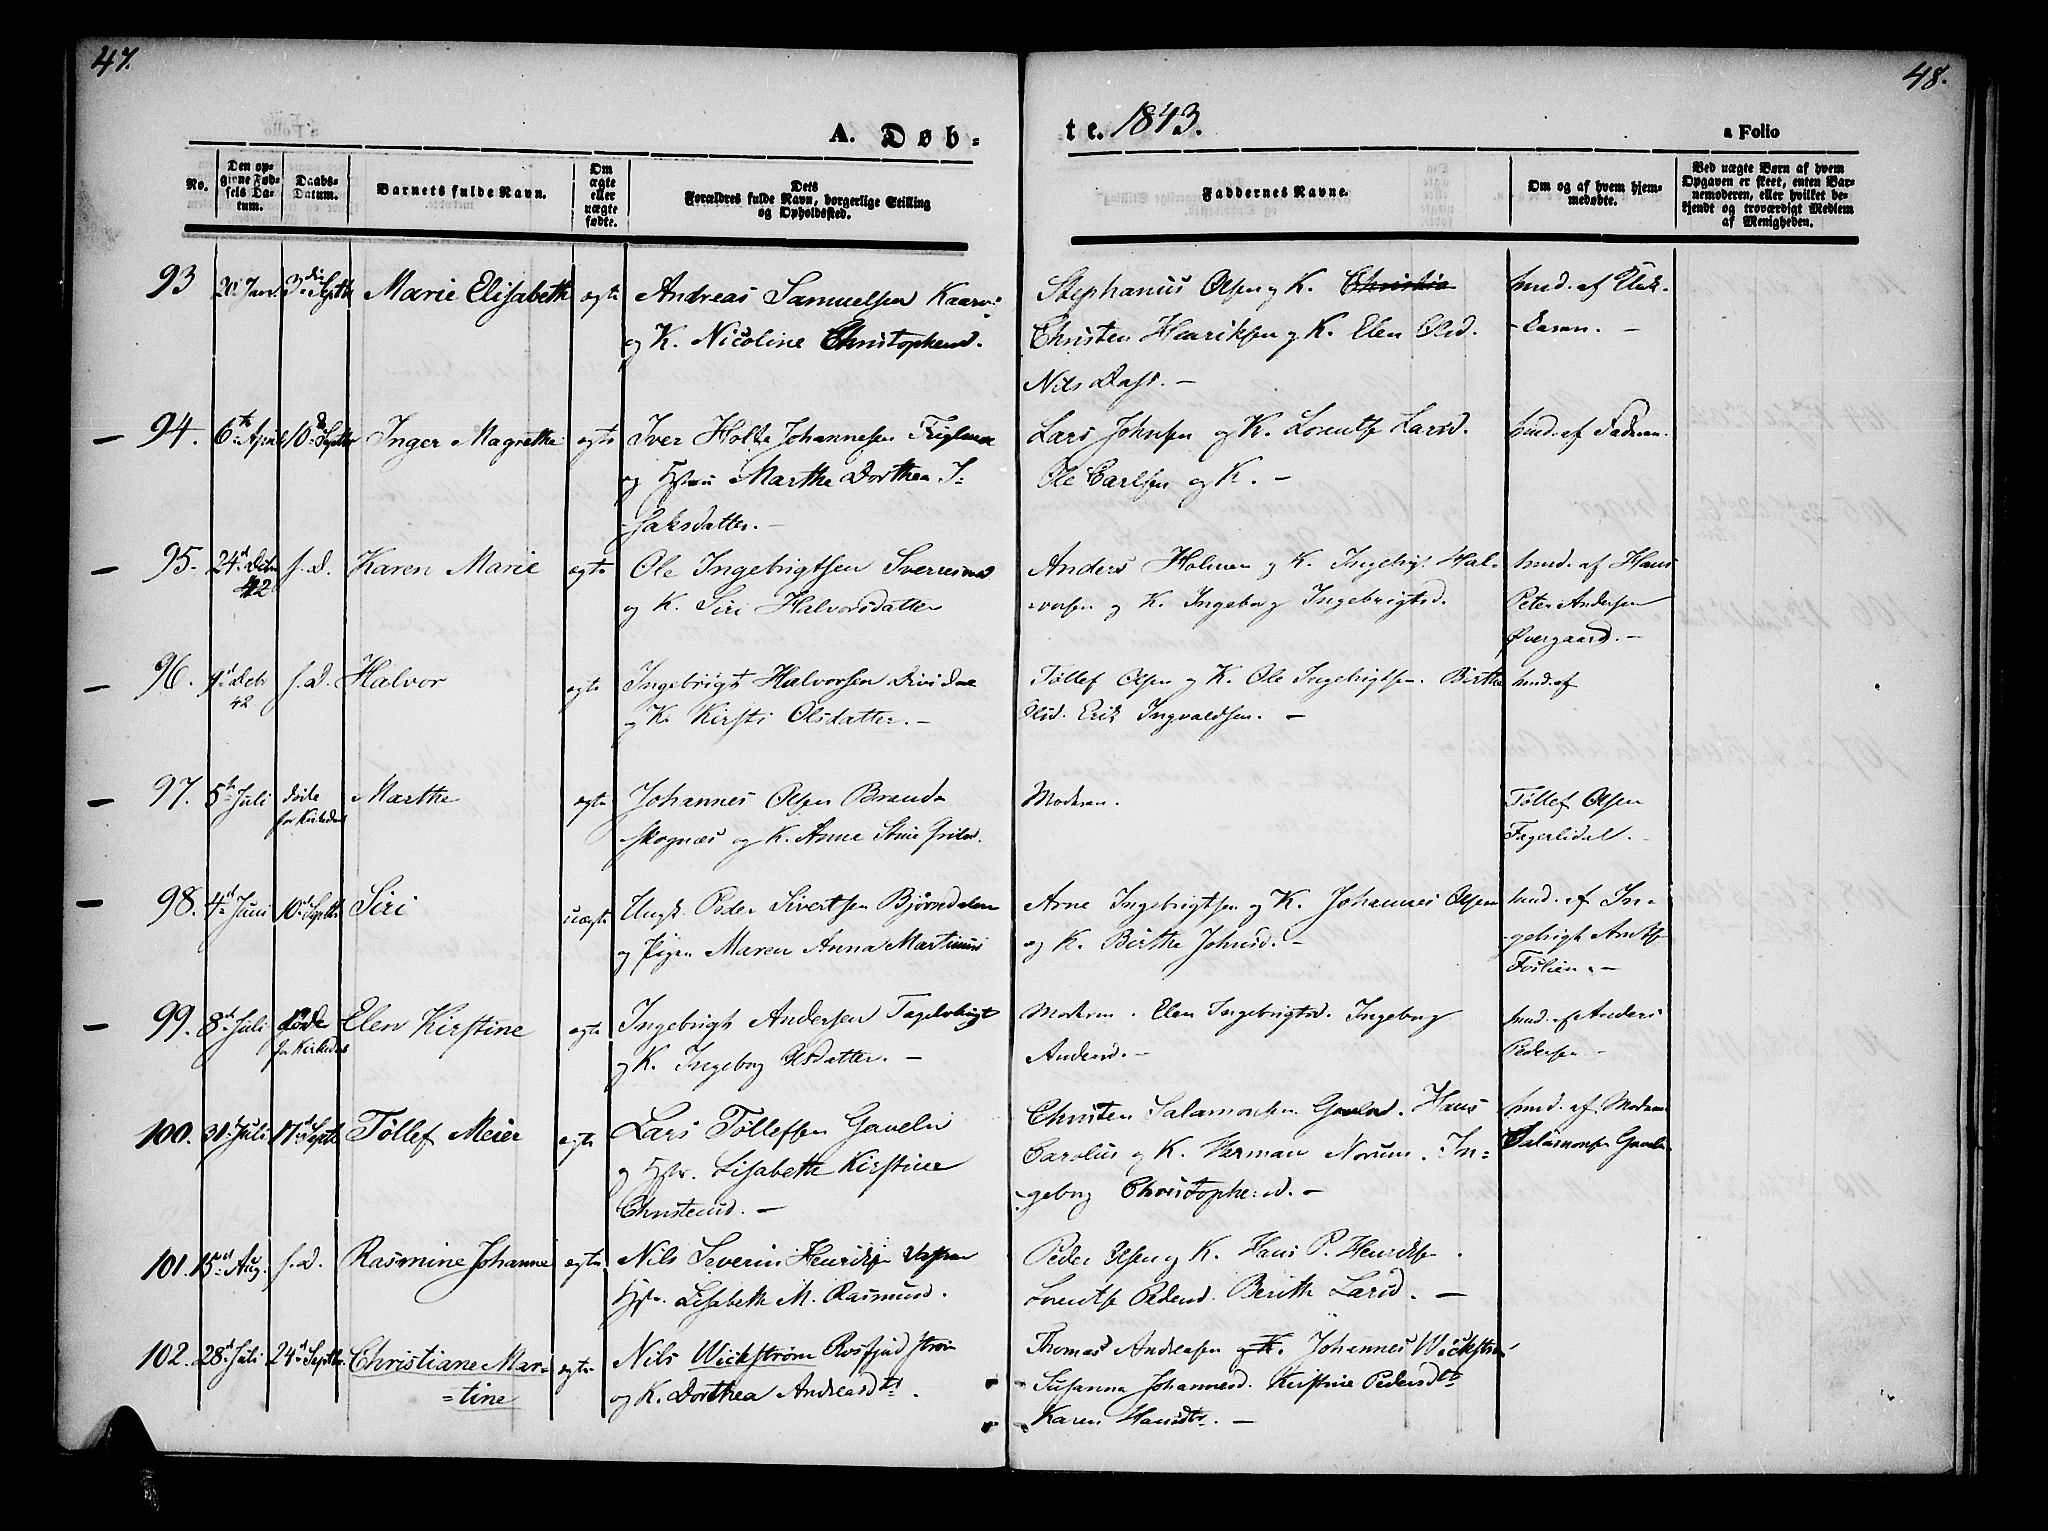 47.
48.
A. Døb-
te. 1843.
a Folio
No.
Den op-
givne Fød-
sels Da-
tum.
Daabs-
Datum.
Barnets fulde Navn.
Om
ægte
eller
uægte
fødte.
Dets
Forældres fulde Navn, borgerlige Stilling
og Opholdssted.
Faddernes Navne.
Om og af hvem hjem-
medøbte.
Ved uægte Børn af hvem
Opgaven er skeet, enten Bar-
nemoderen, eller hvilket be-
kjendt og troværdigt Medlem
af Menigheden.
93 3die Septb Marie Elisabeth ægte Andreas Samuelsen
og K. Nicoline Christophersd.
Stephanus Olsen og K. Christia
Christen Henriksen og K. Elen Olsd.
Nils Dass. –
hmd. af
94. 6te April 10de Septbr Inger Magrethe ægte Iver Holte Johannesen
og Hstru Marthe Dorthea I-
saksdatter. –
Lars Johnsen og K. Lorentse Larsd.
Ole Carlsen og K. –
hmd. af Faderen.
95. 24d Debr 42 s. D. Karen Marie ægte Ole Ingebrigtsen
og K. Siri Halvorsdatter
Anders Holmen og K. Ingebrigt Hal-
vorsen og K. Ingeborg Ingebrigtsd.
hmd. af Hans
Peter Andersen
Øvergaard. –
96. 1d Debr 42 s. D. Halvor ægte Ingebrigt Halvorsen
og K. Kirsti Olsdatter. –
Tøllef Olsen og K. Ole Ingebrigtsen. Birthe
Olsd. Erik Ingvaldsen. –
hmd. af
97. 5te Juli døde før Kirkedaab Marthe ægte Johannes Olsen Brands
skognæs og K. Anne
Moderen.
Tøllef Olsen
Fagerlidal. –
98. 4d Juni 10d Septbr Siri uægte Ungk. Peder Sivertsen Bjørndalen
og Pigen Maren Anna
Arne Ingebrigtsen og K. Johannes Olsen
og K. Birthe Johnsd. –
hmd. af In-
gebrigt
Foslien. –
99. 8d Juli døde før Kirkedaab Elen Kirstine ægte Ingebrigt Andersen
og K. Ingeborg Olsdatter. –
Moderen. Elen Ingebrigtsd. Ingeborg
Andersd. –
hmd. af Anders
Pedersen –
100. 31 Juli 17d Septbr Tøllef Meier ægte Lars Tøllefsen Gaveln
og Hstr. Lisabeth Kirstine
Christensd. –
Christen Salamonsen Gaveln. Hans
Carolus og K. Herman Norum. In-
geborg Christophersd. –
hmd. af Moderen
Salamonsen Gaveln
101. 15de Aug. s. D. Rasmine Johanne ægte Nils Severin Henriksen
Hstr. Lisabeth M. Rasmusd.
Peder Olsen og K. Hans P. Henriksen.
Lorentse Pedersd. Berith Larsd. –
102. 28d Juli 24d Septbr. Christiane Mar-
=tine ægte Nils Wickstrøm Rosfjordstrøm
og K. Dorthea Andreasdtr.
Thomas Andreasen og K. Johannes Wickstrøm
Susanna Johannesd. Kirstine Pedersdtr
Karen Hansdtr. –